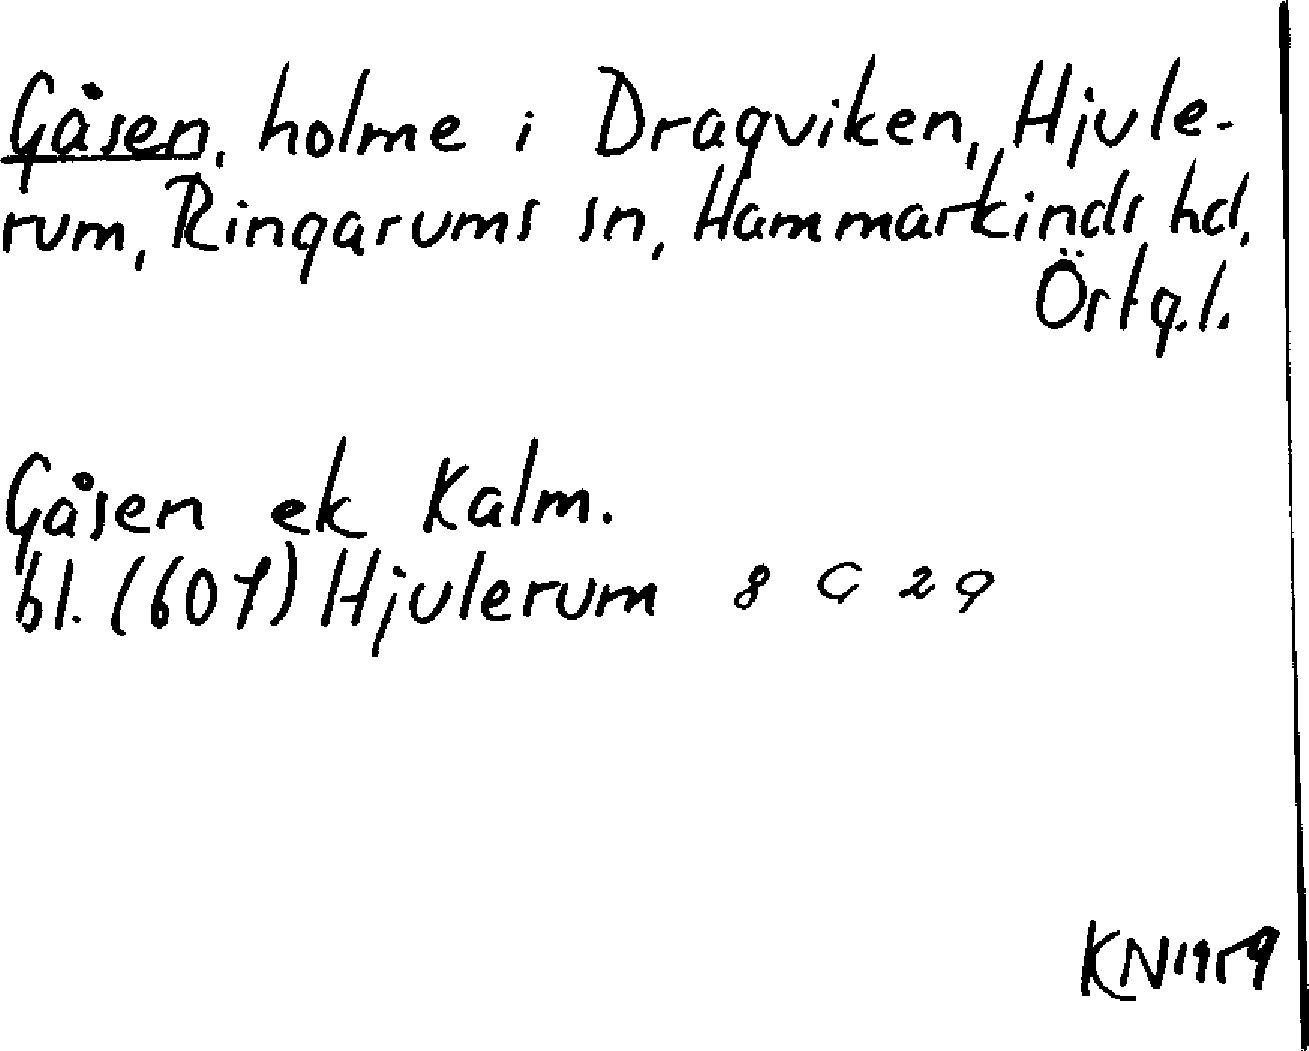 Gåsen, holme i Dragviken, Hjule-
rum, Ringarums sn, Hammarkinds hd,
Östg.l.
Gåsen ek Kalm.
bl. (607) Hjulerum 8 G 2 a
KN 1959